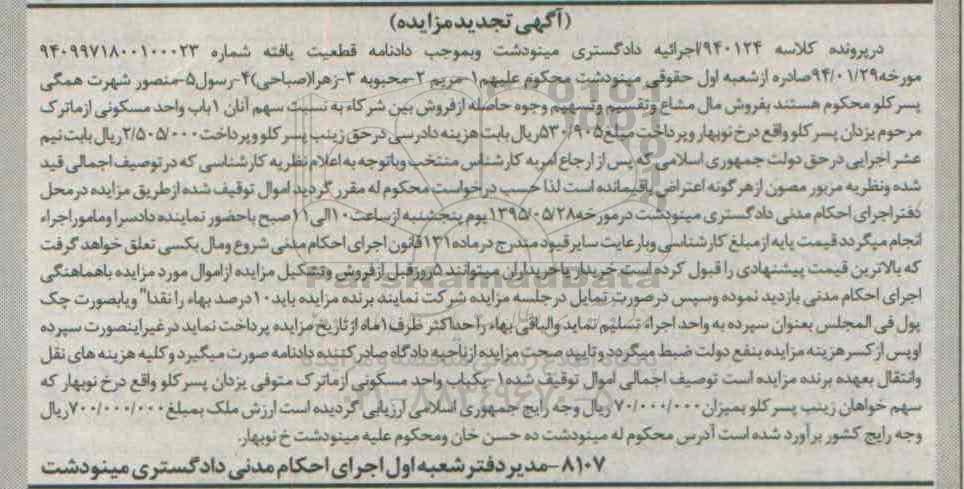 (آگهی تجدید مزایده)
درپرونده کلاسه ۹۴۰۱۲۴/اجرائیه دادگستری مینودشت وبموجب دادنامه قطعیت یافته شماره ۹۴۰۹۹۷۱۸۰۰۱۰۰۰۲۳
مورخه۹۴/۰۱/۲۹صادره ازشعبه اول حقوقی مینودشت محکوم علیهم۱-مریم ۲-محبوبه ۳-زهرا(صباحی)۴-رسول۵-منصور شهرت همگی
پسرکلو محکوم هستند بفروش مال مشاع وتقسیم وتسهیم وجوه حاصله ازفروش بین شرکاء به نسبت سهم آنان ۱باب واحد مسکونی ازماترک
مرحوم یزدان پسرکلو واقع درخ نوبهار وپرداخت مبلغ۵۳۰/۹۰۵ریال بابت هزینه دادرسی درحق زینب پسرکلو وپرداخت۲/۵۰۵/۰۰۰ریال بابت نیم
عشر اجرایی درحق دولت جمهوری اسلامی که پس از ارجاع امربه کارشناس منتخب وباتوجه به اعلام نظریه کارشناسی که درتوصیف اجمالی قید
شده ونظریه مزبور مصون ازهرگونه اعتراض باقیمانده است لذا حسب درخواست محکوم له مقرر گردید اموال توقیف شده ازطریق مزایده درمحل
دفتراجرای احکام مدنی دادگستری مینودشت درمورخه۱۳۹۵/۰۵/۲۸یوم پنجشنبه ازساعت۱۰الی۱۱صبح باحضور نماینده دادسرا وماموراجراء
انجام میگردد قیمت پایه ازمبلغ کارشناسی وبارعایت سایرقیود مندرج درماده۱۳۱قانون اجرای احکام مدنی شروع ومال بکسی تعلق خواهد گرفت
که بالاترین قیمت پیشنهادی را قبول کرده است خریدار یاخریداران میتوانند ۵روزقبل ازفروش وتشکیل مزایده ازاموال مورد مزایده باهماهنگی
اجرای احکام مدنی بازدید نموده وسپس درصورت تمایل درجلسه مزایده شرکت نمایند برنده مزایده باید۱۰درصد بهاء را نقدا" ویابصورت چک
پول فی المجلس بعنوان سپرده به واحد اجراء تسلیم نماید والباقی بهاء راحداکثر ظرف۱ماه ازتاریخ مزایده پرداخت نماید درغیراینصورت سپرده
اوپس ازکسرهزینه مزایده بنفع دولت ضبط میگردد وتایید صحت مزایده ازناحیه دادگاه صادرکننده دادنامه صورت میگیرد وکلیه هزینه های نقل
وانتقال بعهده برنده مزایده است توصیف اجمالی اموال توقیف شده۱-یکباب واحد مسکونی ازماترک متوفی یزدان پسرکلو واقع درخ نوبهار که
سهم خواهان زینب پسرکلو بمیزان۷۰/۰۰۰/۰۰۰ ریال وجه رایج جمهوری اسلامی ارزیابی گردیده است ارزش ملک بمبلغ۷۰۰/۰۰۰/۰۰۰ریال
وجه رایج کشور برآورد شده است آدرس محکوم له مینودشت ده حسن خان ومحکوم علیه مینودشت خ نوبهار.
۸۱۰۷-مدیردفترشعبه اول اجرای احکام مدنی دادگستری مینودشت
ParsNamadData
۰۲۱-۸۸۳۴۹۶۷۰-۵